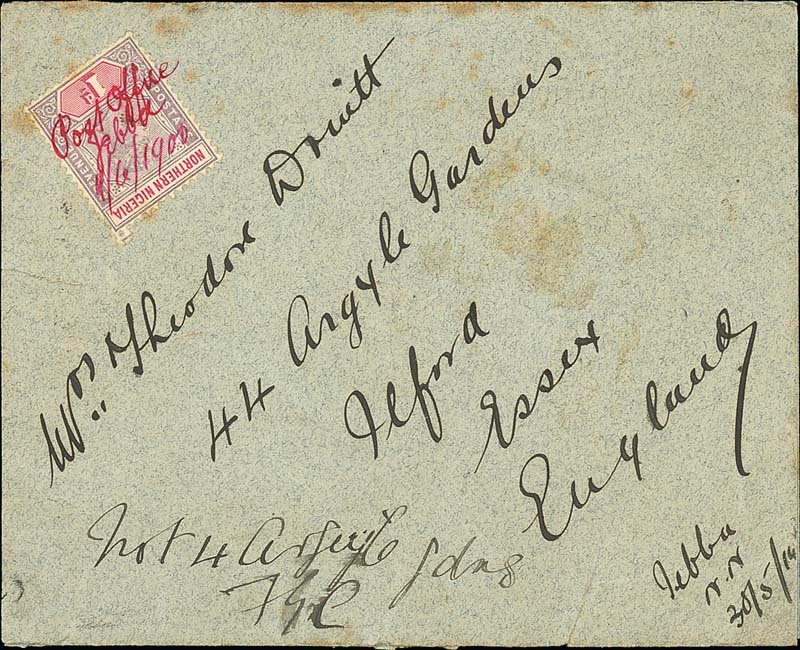 Post Office
Jebba
1/6/1900
1d
POSTAGE
REVENUE
NORTHERN NIGERIA
Mrs. Theodore Druitt
44 Argyle Gardens
Ilford
Essex
England
Not 4 Argyle gdns
Jebba
N.N
30/5/